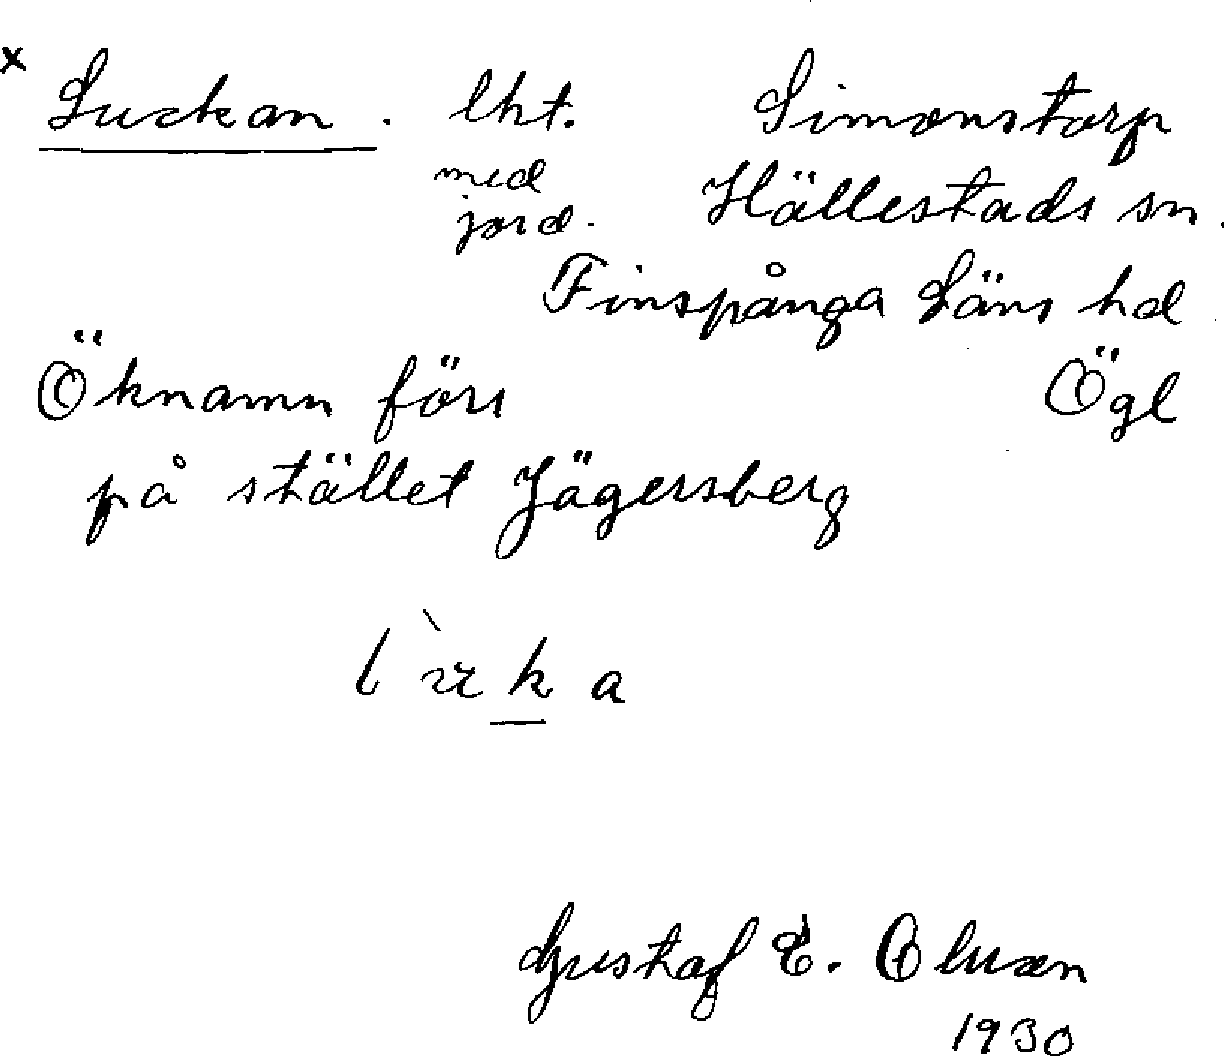 x Luckan. lht. Simonstorp
med
jord. Hällestads sn.
Finspånga Läns hd
Öknamn förr Ögl
på stället Jägersberg
Gustaf E. Olsson
1930